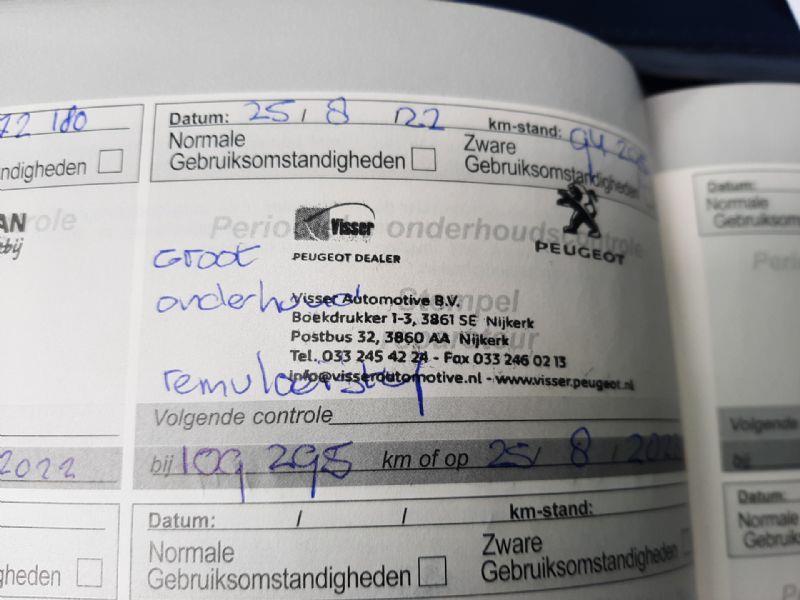 72 180
Datum: 25 / 8 / 22 km-stand: 94 295
Normale
Gebruiksomstandigheden
Zware
Gebruiksomstandigheden
ndigheden
Visser
PEUGEOT DEALER
PEUGEOT
Periodieke onderhoudscontrole
Groot
onderhoud
remvloeistof
Stempel
reparateur
Visser Automotive B.V.
Boekdrukker 1-3, 3861 SE Nijkerk
Postbus 32, 3860 AA Nijkerk
Tel. 033 245 42 24 - Fax 033 246 02 13
info@visserautomotive.nl - www.visser.peugeot.nl
Volgende controle
bij 109 295 km of op 25 / 8 /
2022
Datum: / / km-stand:
Normale
Gebruiksomstandigheden
Zware
Gebruiksomstandigheden
gheden
Datum:
Normale
Gebruiksom
Volgende
bij
Datum:
Normale
Gebruikso